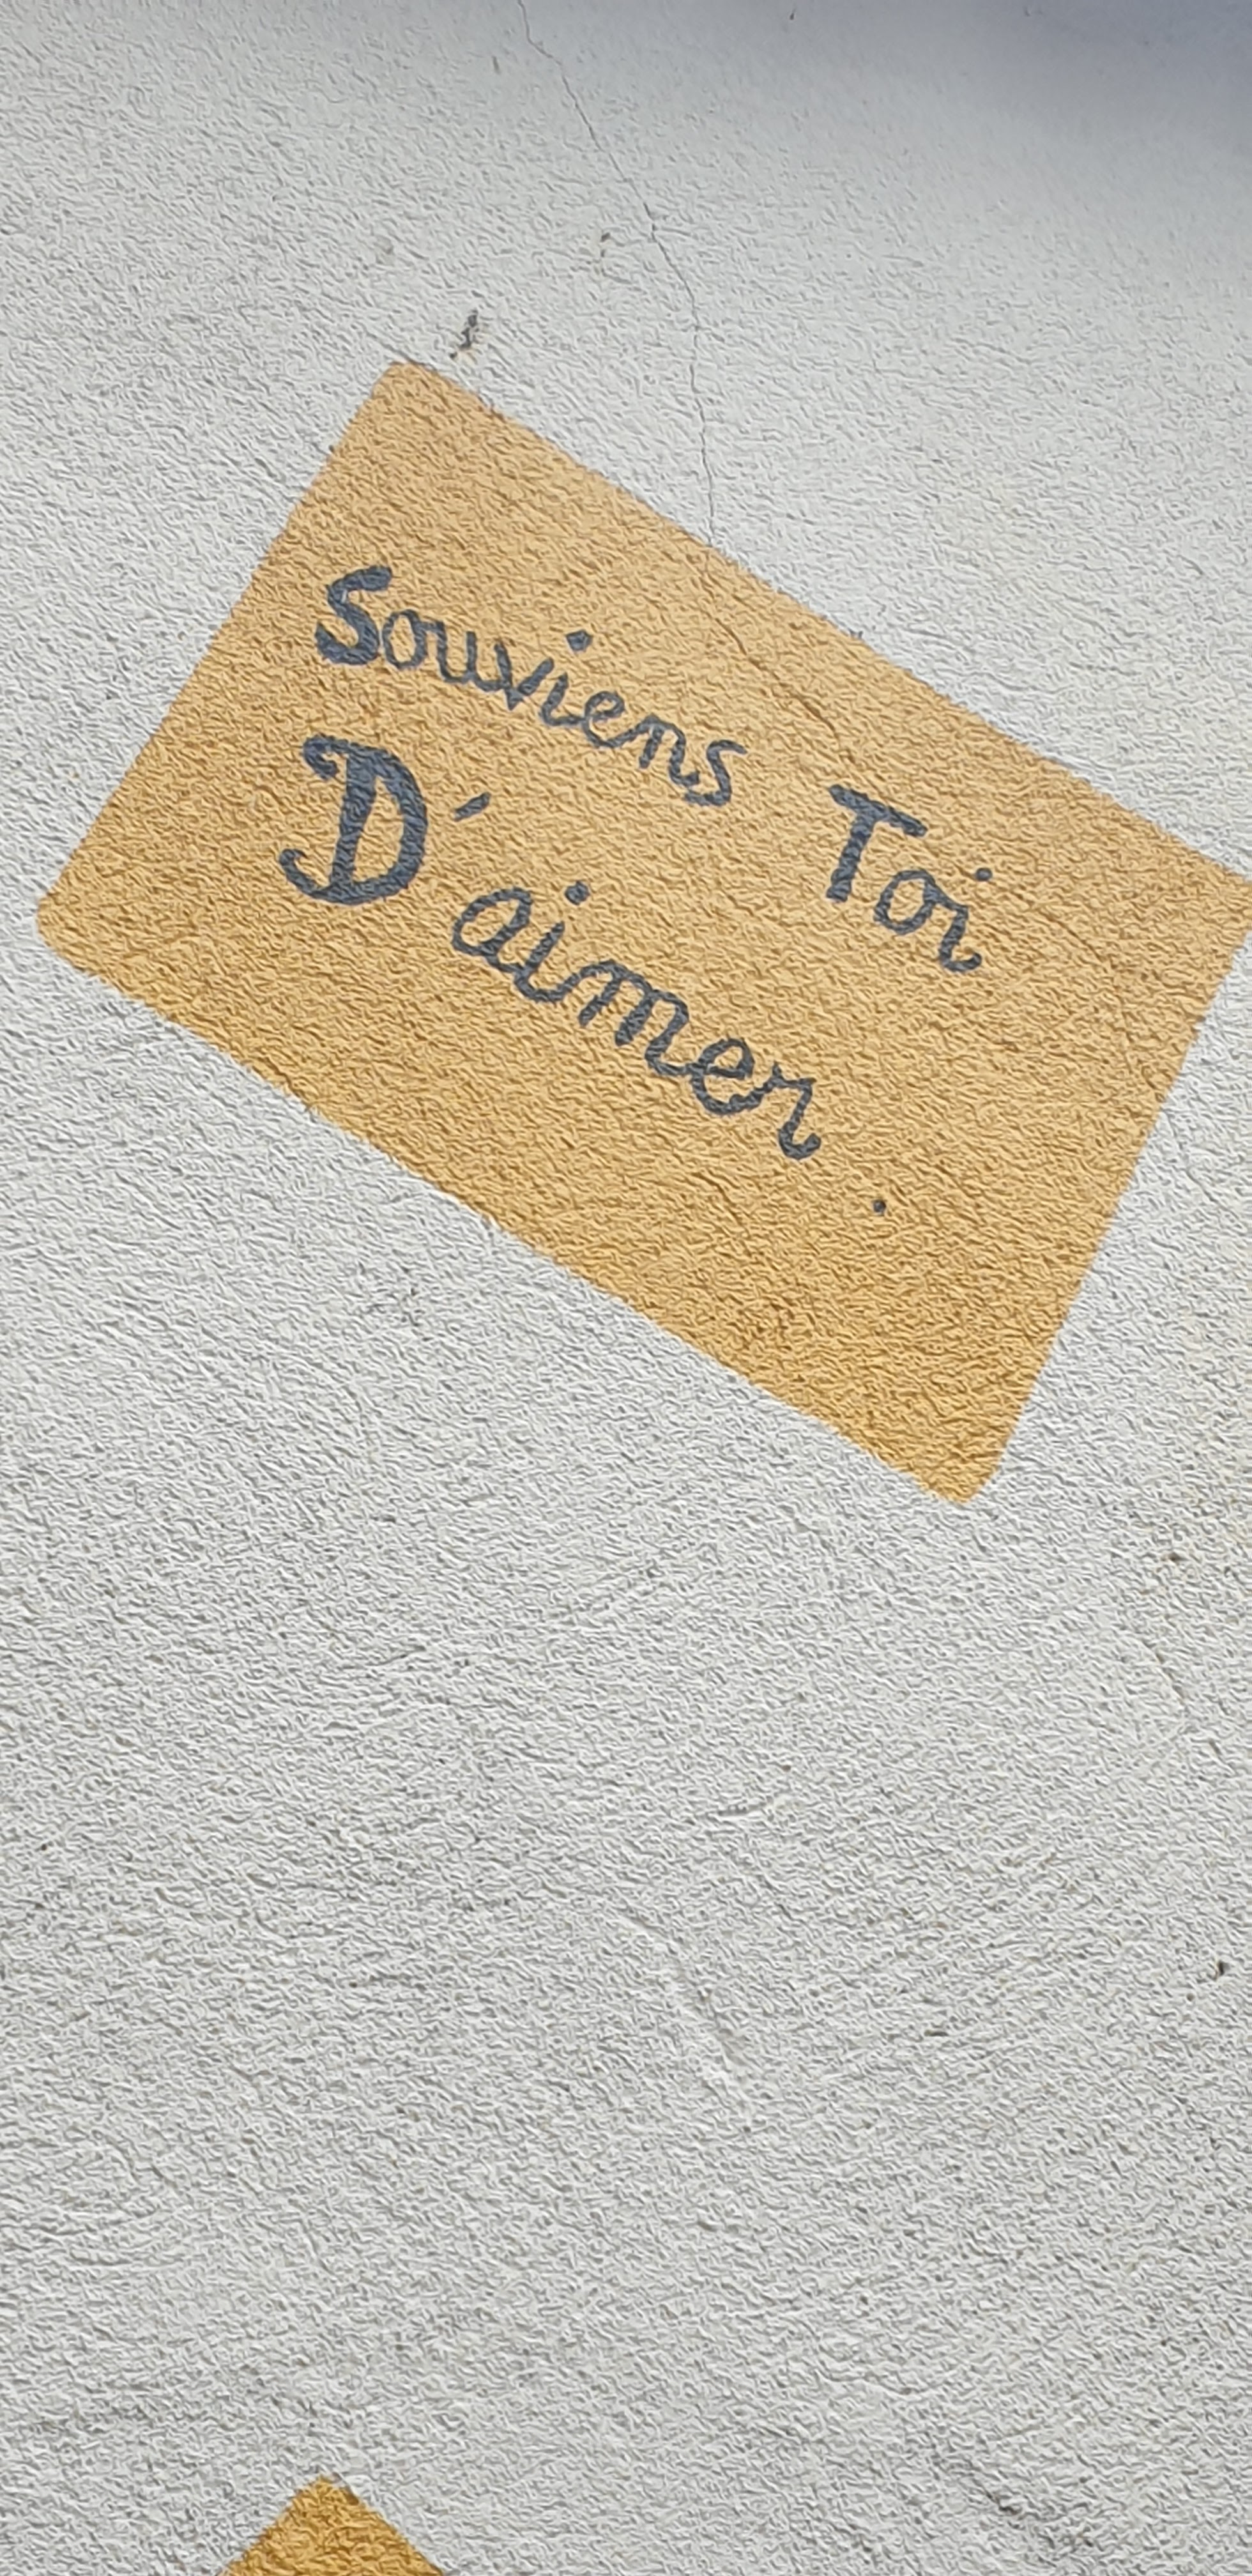 Souviens Toi
D'aimer.